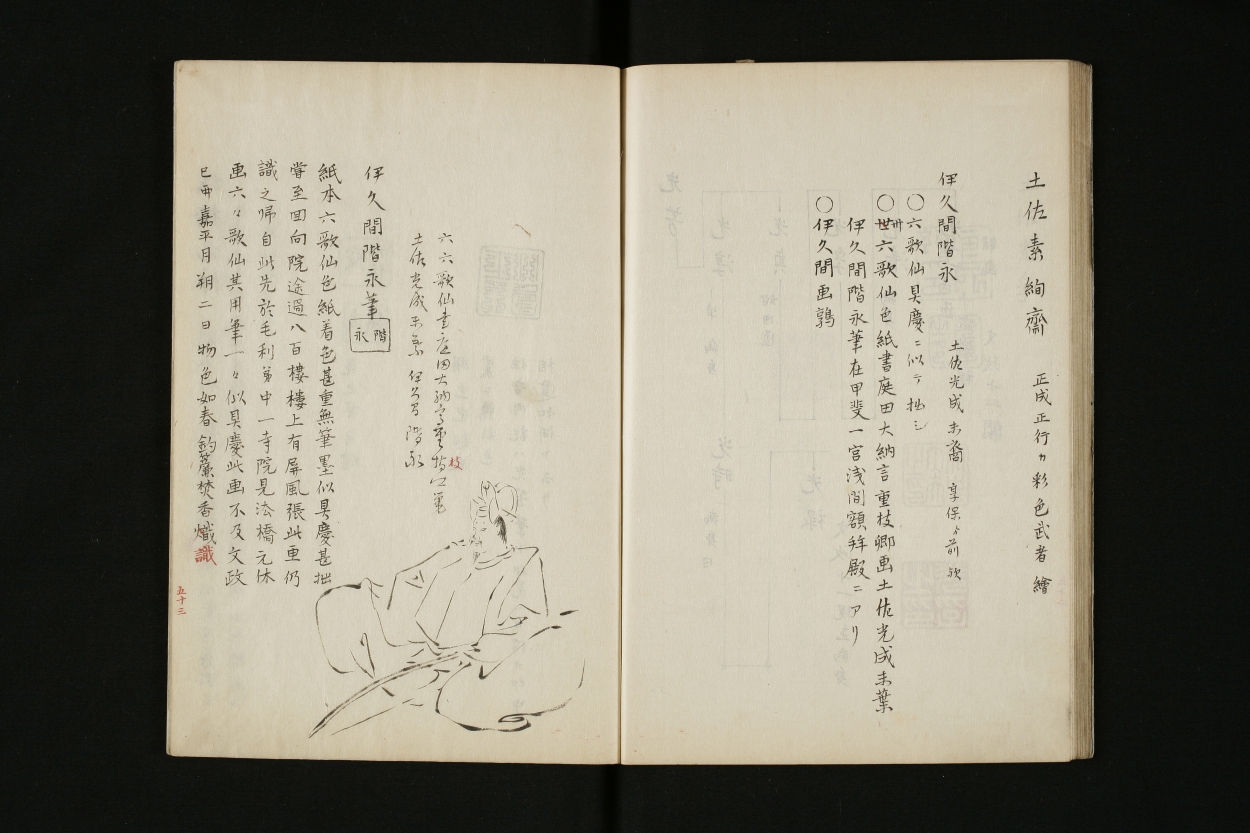 土佐素絢齋 正成正行ノ彩色武者繪
伊久間階永 土佐光成末裔 享保ゟ前欤
〇六歌仙具慶ニ似テ拙シ
〇卅六歌仙色紙書庭田大納言重枝卿画土佐光成末葉
伊久間階永筆在甲斐一宮浅間額拜殿ニアリ
〇伊久間画鶉
六六歌仙書庭田大納言重
枝
土佐光成末葉 伊久間階永
伊久間階永筆
階永
紙本六歌仙色紙着色甚重無筆墨似具慶甚拙
甞至回向院途過八百樓樓上有屏風張此画仍
識之帰自此先於毛利弟中一寺院見法橋元休
画六々歌仙其用筆一々似具慶此画不及文政
己酉嘉平月朔二日物色如春釣簾焚香熾
識
五十三